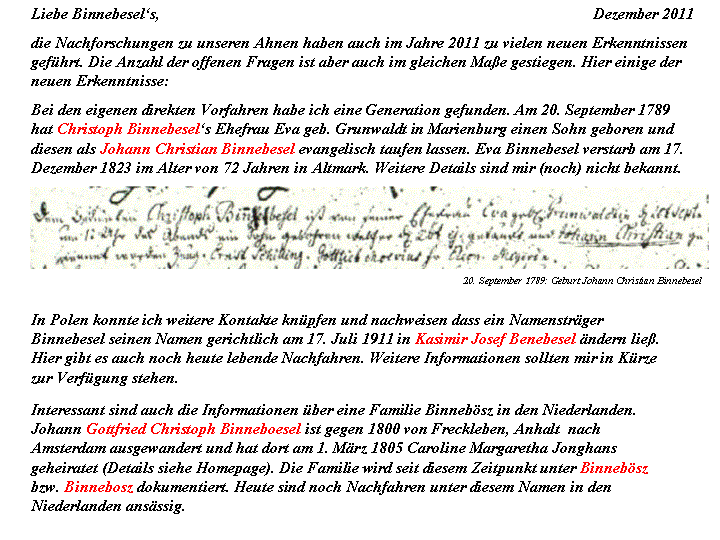 Liebe Binnebesel‘s, Dezember 2011
die Nachforschungen zu unseren Ahnen haben auch im Jahre 2011 zu vielen neuen Erkenntnissen
geführt. Die Anzahl der offenen Fragen ist aber auch im gleichen Maße gestiegen. Hier einige der
neuen Erkenntnisse:
Bei den eigenen direkten Vorfahren habe ich eine Generation gefunden. Am 20. September 1789
hat Christoph Binnebesel‘s Ehefrau Eva geb. Grunwaldt in Marienburg einen Sohn geboren und
diesen als Johann Christian Binnebesel evangelisch taufen lassen. Eva Binnebesel verstarb am 17.
Dezember 1823 im Alter von 72 Jahren in Altmark. Weitere Details sind mir (noch) nicht bekannt.
Christoph Binnebesel ist von seiner Ehefrau Eva geb. Grunwaldtin
um 12 Uhr des Abends ein Sohn gebohren welcher getauft und Johann Christian
genannt worden Ernst Schilling. Gottlieb
20. September 1789: Geburt Johann Christian Binnebesel
In Polen konnte ich weitere Kontakte knüpfen und nachweisen dass ein Namensträger
Binnebesel seinen Namen gerichtlich am 17. Juli 1911 in Kasimir Josef Benebesel ändern ließ.
Hier gibt es auch noch heute lebende Nachfahren. Weitere Informationen sollten mir in Kürze
zur Verfügung stehen.
Interessant sind auch die Informationen über eine Familie Binnebösz in den Niederlanden.
Johann Gottfried Christoph Binneboesel ist gegen 1800 von Freckleben, Anhalt nach
Amsterdam ausgewandert und hat dort am 1. März 1805 Caroline Margaretha Jonghans
geheiratet (Details siehe Homepage). Die Familie wird seit diesem Zeitpunkt unter Binnebösz
bzw. Binnebosz dokumentiert. Heute sind noch Nachfahren unter diesem Namen in den
Niederlanden ansässig.